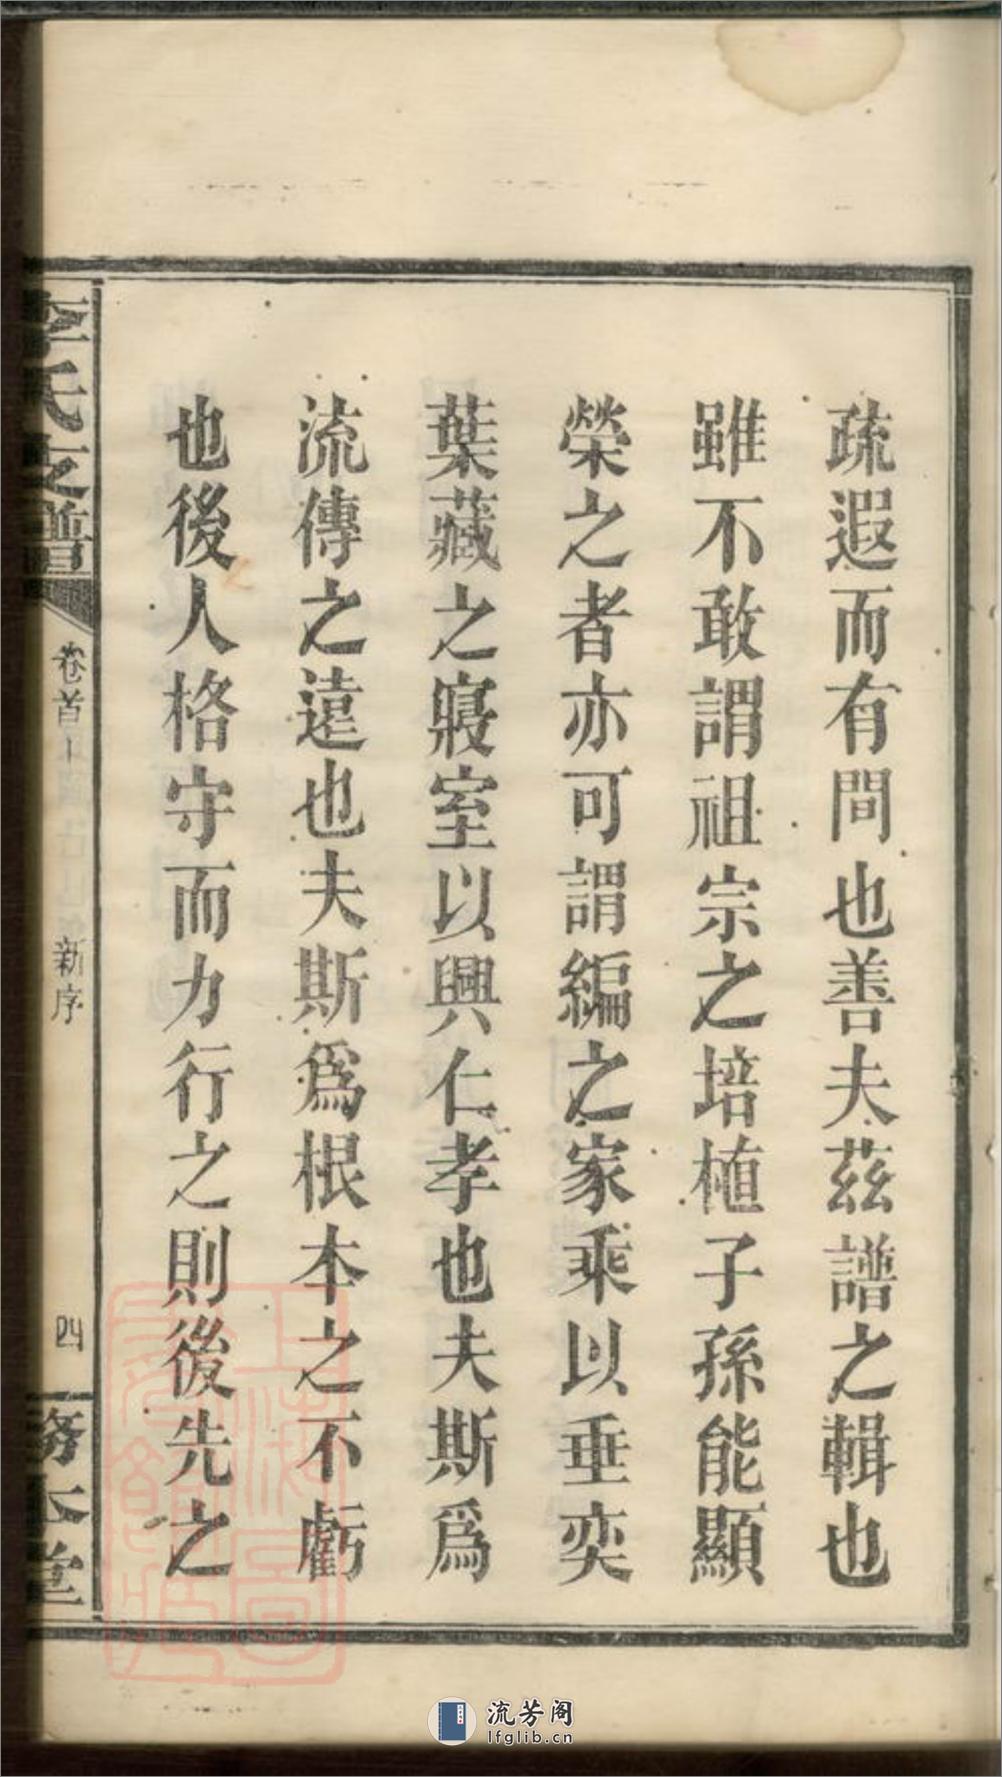 疏遐而有間也善夫茲譜之輯也
雖不敢謂祖宗之培植子孫能顯
榮之者亦可謂編之家乘以垂奕
葉藏之寢室以興仁孝也夫斯爲
流傳之遠也夫斯爲根本之不虧
也後人格守而力行之則後先之
李氏支譜
卷首
新序
四
務本堂
流芳阁
lfglib.cn